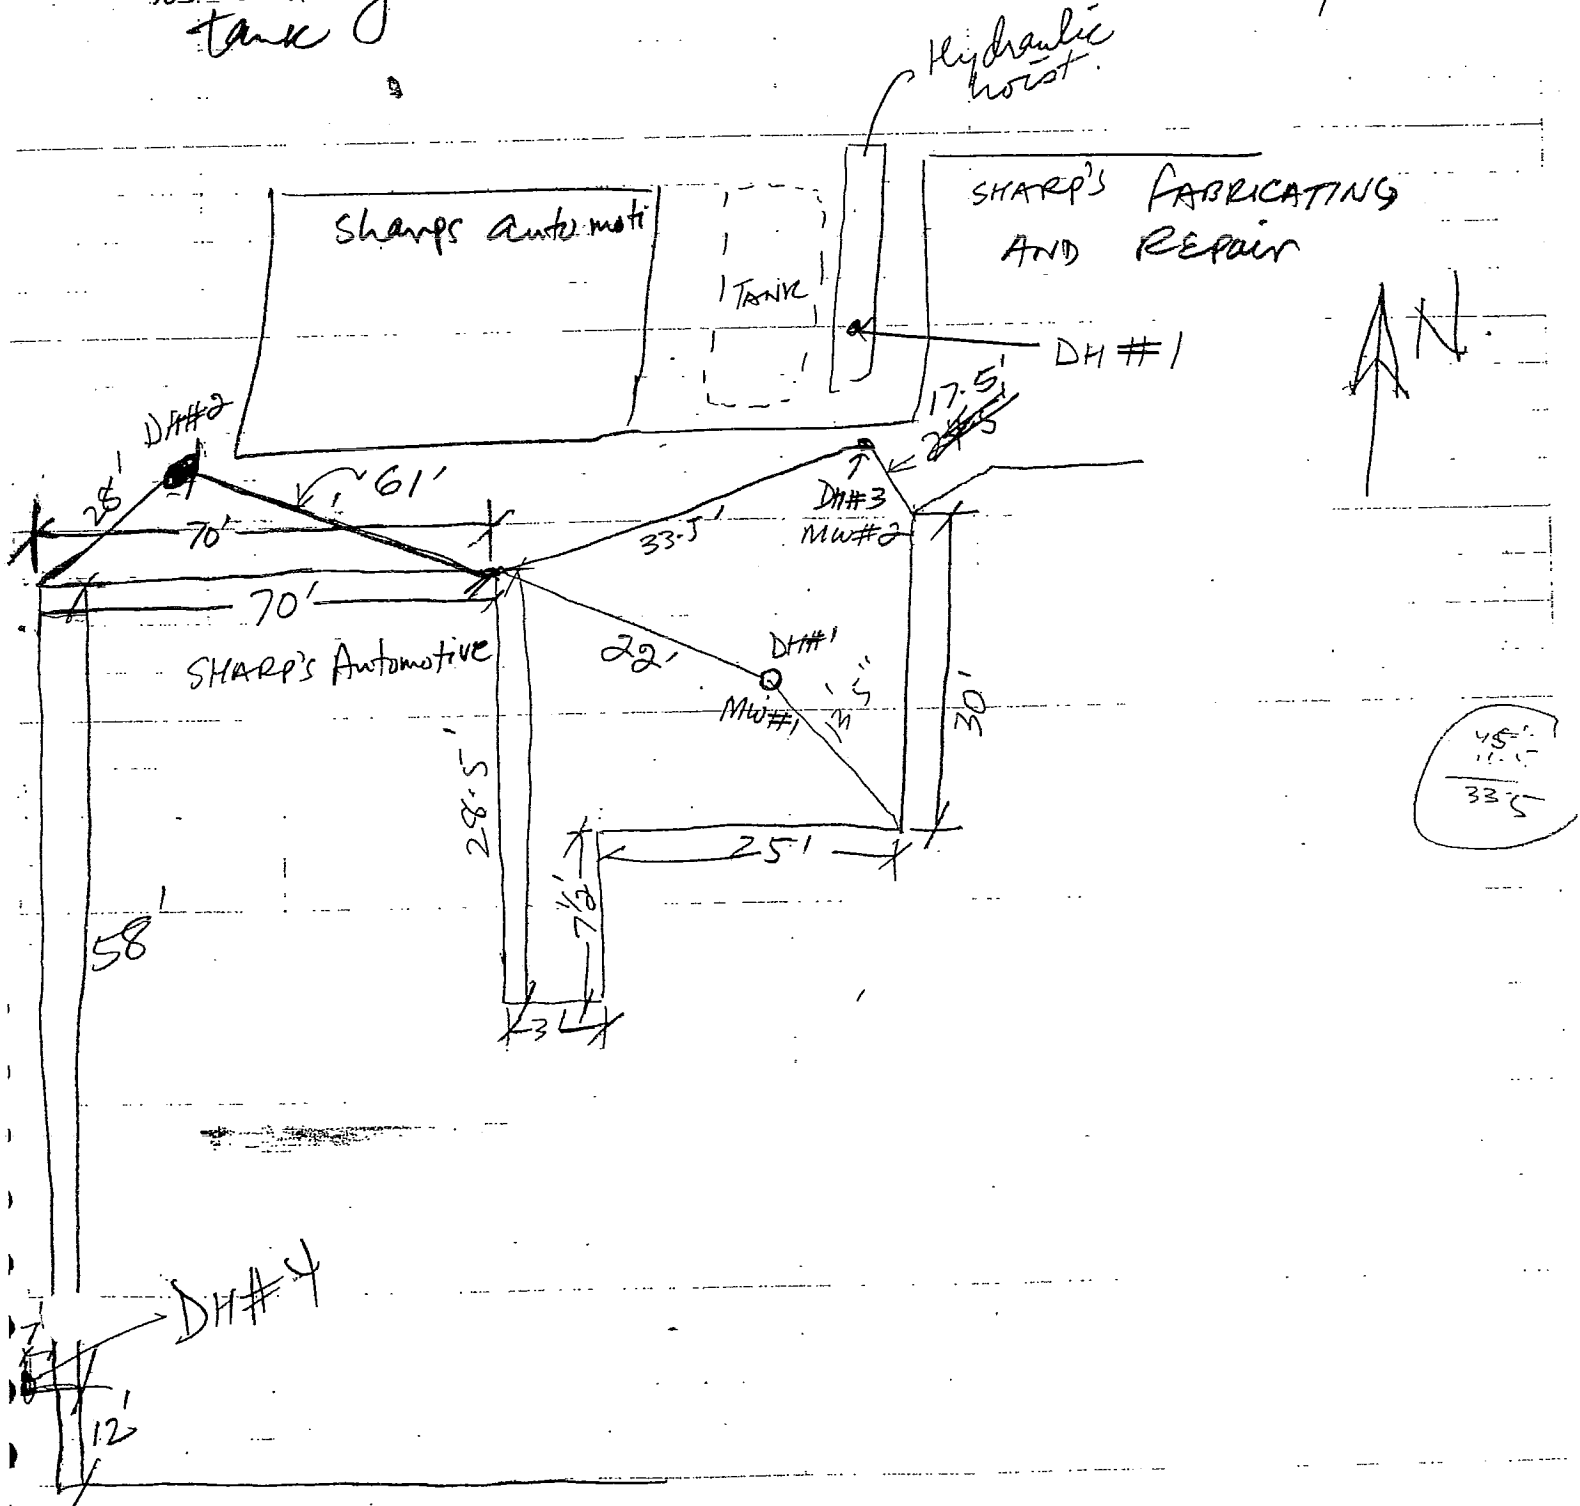 tank
Hydraulic
hoist.
Sharps automoti
TANK
SHARP'S FABRICATING
AND REPair
DH #1
N.
17.5'
DH#2
28'
61'
70'
33.5'
DH#3
MW#2
70'
SHARP'S Automotive
22'
DH#1
MW#1
30'
28.5'
25'
7½'
33.5
58'
3'
DH#4
7'
12'